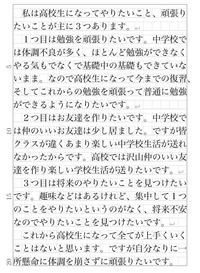 私は高校生になってやりたいこと、頑張り
たいことが主に３つあります。
１つ目は勉強を頑張りたいです。中学校で
は体調不良が多く、ほとんど勉強ができなく
やる気もでなくて基礎中の基礎もできていな
いまま。なので高校生になって今までの復習、
そしてこれからの勉強を頑張って普通に勉強
ができるようになりたいです。
２つ目はお友達を作りたいです。中学校で
は仲のいいお友達は少し居ました。ですが皆
クラスが違くあまり楽しい中学校生活が送れ
なかったからです。高校では沢山仲のいい友
達を作り楽しい学校生活が送りたいです。
３つ目は将来のやりたいことを見つけたい
です。趣味などはあるけれど、集中して１つ
のことをやりたいというのがなく、将来不安
なのでやりたいことを見つけたいです。
これから高校生になって全てが上手くいく
ことはないと思います。ですが自分なりに一
所懸命に体調を崩さずに頑張りたいです。
5
10
15
20